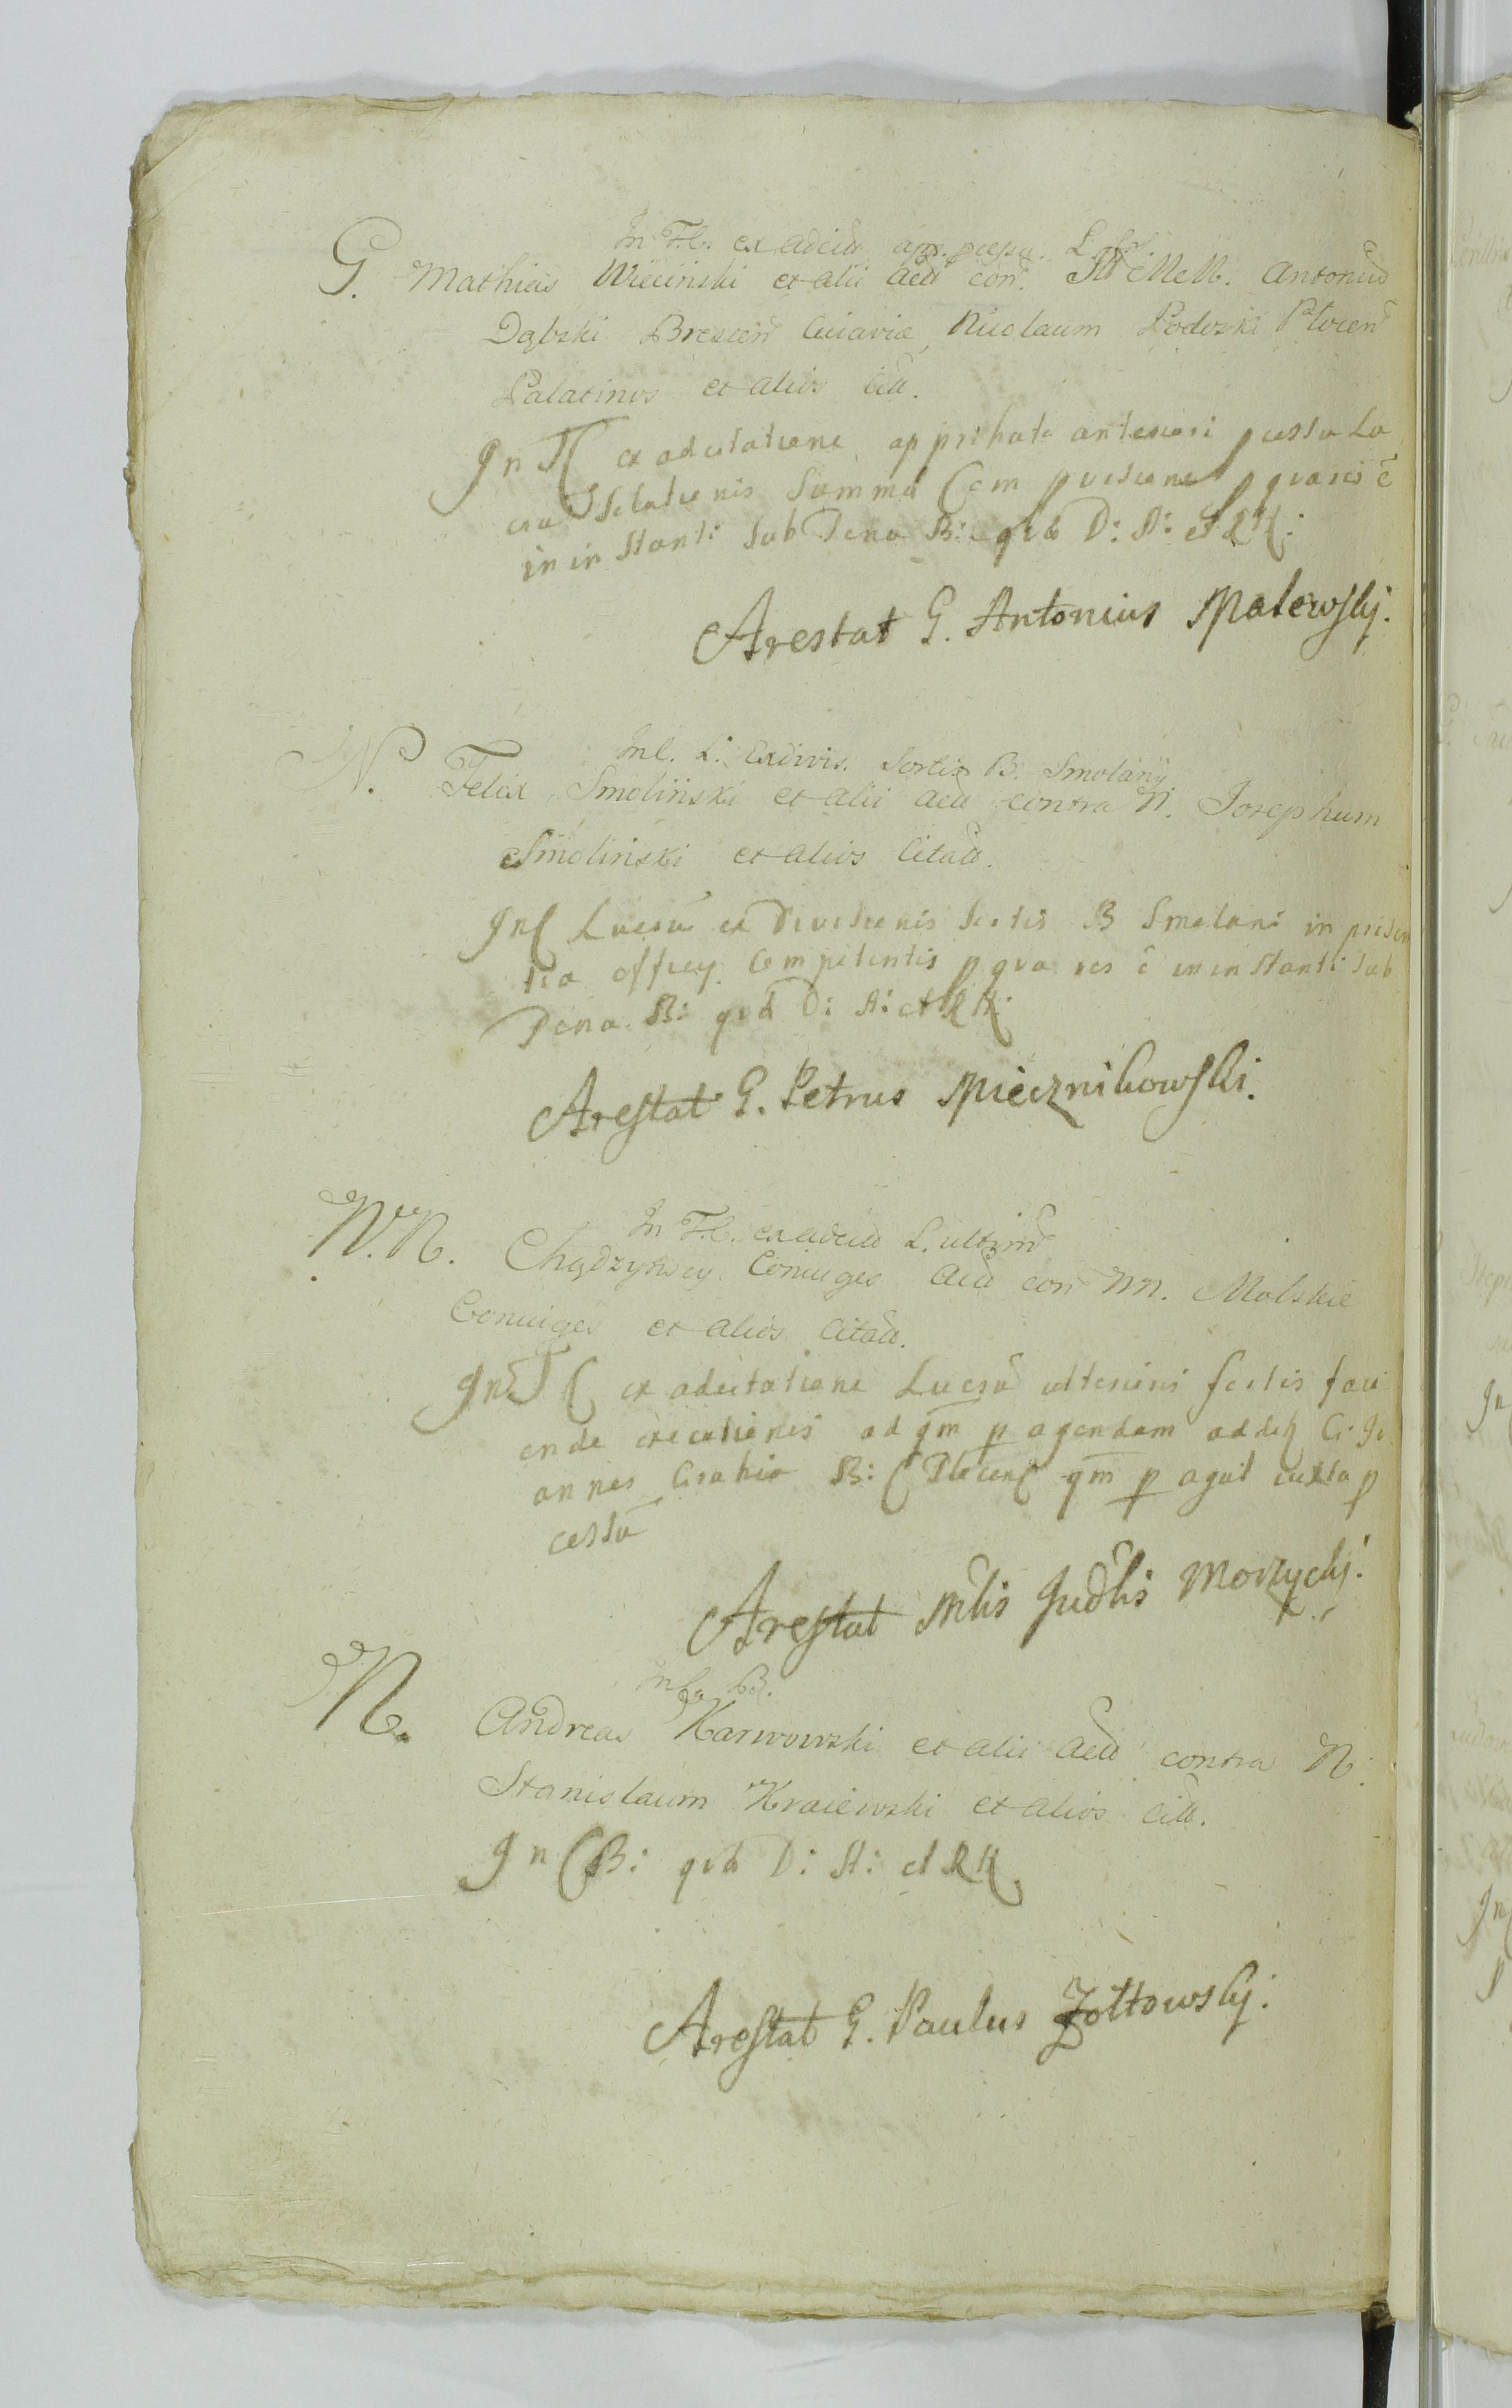 In F.C. ex adcita. app. pcessu. L
G. Mathias Wieciński et alii Act. con. Ill MM. Antonium
Dąbski Bresten Cuiaviæ, Nicolaum Podoski Plocen
Palatinos et alios Citt.
In TC ex adcitatione approbato anteriori pcessu Lu
cra Solutionis Summa Com pvisione p qua res ē
in instanti sub Pena B: qvia D: A: et RK:
Arestat G. Antonius Malewskj.
InC. L. Exdivis. Sortis B. Smolany
N. Felix Smoliński et alii Act contra N. Josephum
Smoliński et alios Citatt.
InC Lucrū ex Divisionis Sortis B Smolani in prisen
tia officy Competentis p qua res ē in instanti sub
Pena B: qvia D: A: et RK:
Arestat G. Petrus Miecznikowski.
In F.C. ex adcita L. ulterim
N.N. Chądzyńscy Coniuges Act con NN. Molskie
Coniuges et alios Citatt.
In TC ex adcitatione Lucrū ulterioris fortis faci
ende execationis ad qm p agendam addit G. Jo
annes Grabia B: C Plocens qm p agit iuxta p
cessū
Arestat Mlis Judlis Morzyckj.
InCa B.
N. Andreas Karwowski et alii Act contra N.
Stanislaum Kraiewski et alios Citt.
In C B: qvia D: A: et RK
Arestat G. Paulus Zołtowskj.